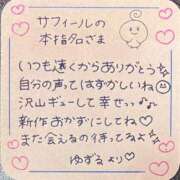 サフィールの
本指名さま
いつも遠くからありがとう
自分の声ってはずかしいね
沢山ギューして幸せっ♪♪
新作おかずにしてね♡
また会えるの待ってるよ
ゆずるより♡